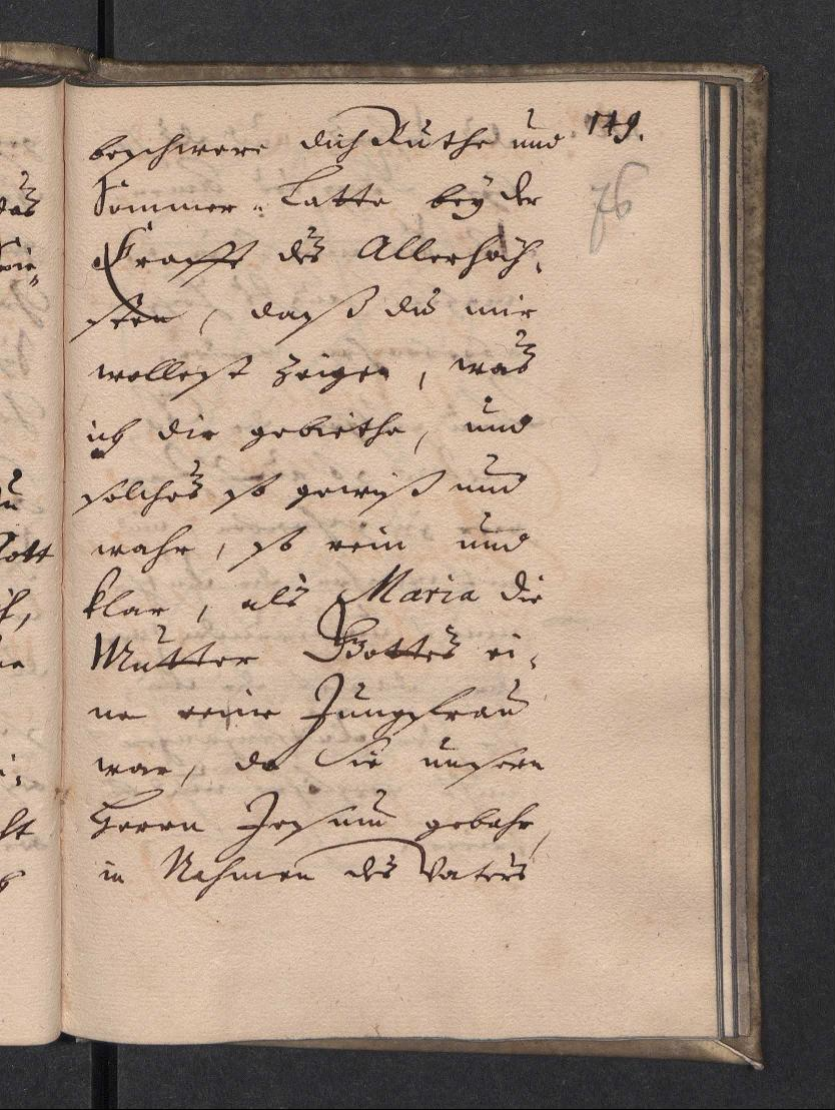 149.
76
beschwere dich Ruthe und
Sommer-Latte bey der
Krafft des Allerhöch-
sten, daß du mir
wollest zeigen, was
ich dir gebiethe, und
solches so gewiß und
wahr, so rein und
klar, als Maria die
Mutter Gottes ei-
ne reine Jungfrau
war, da Sie unsern
Herrn Jesum gebahr,
in Nahmen des Vaters
das
Gott